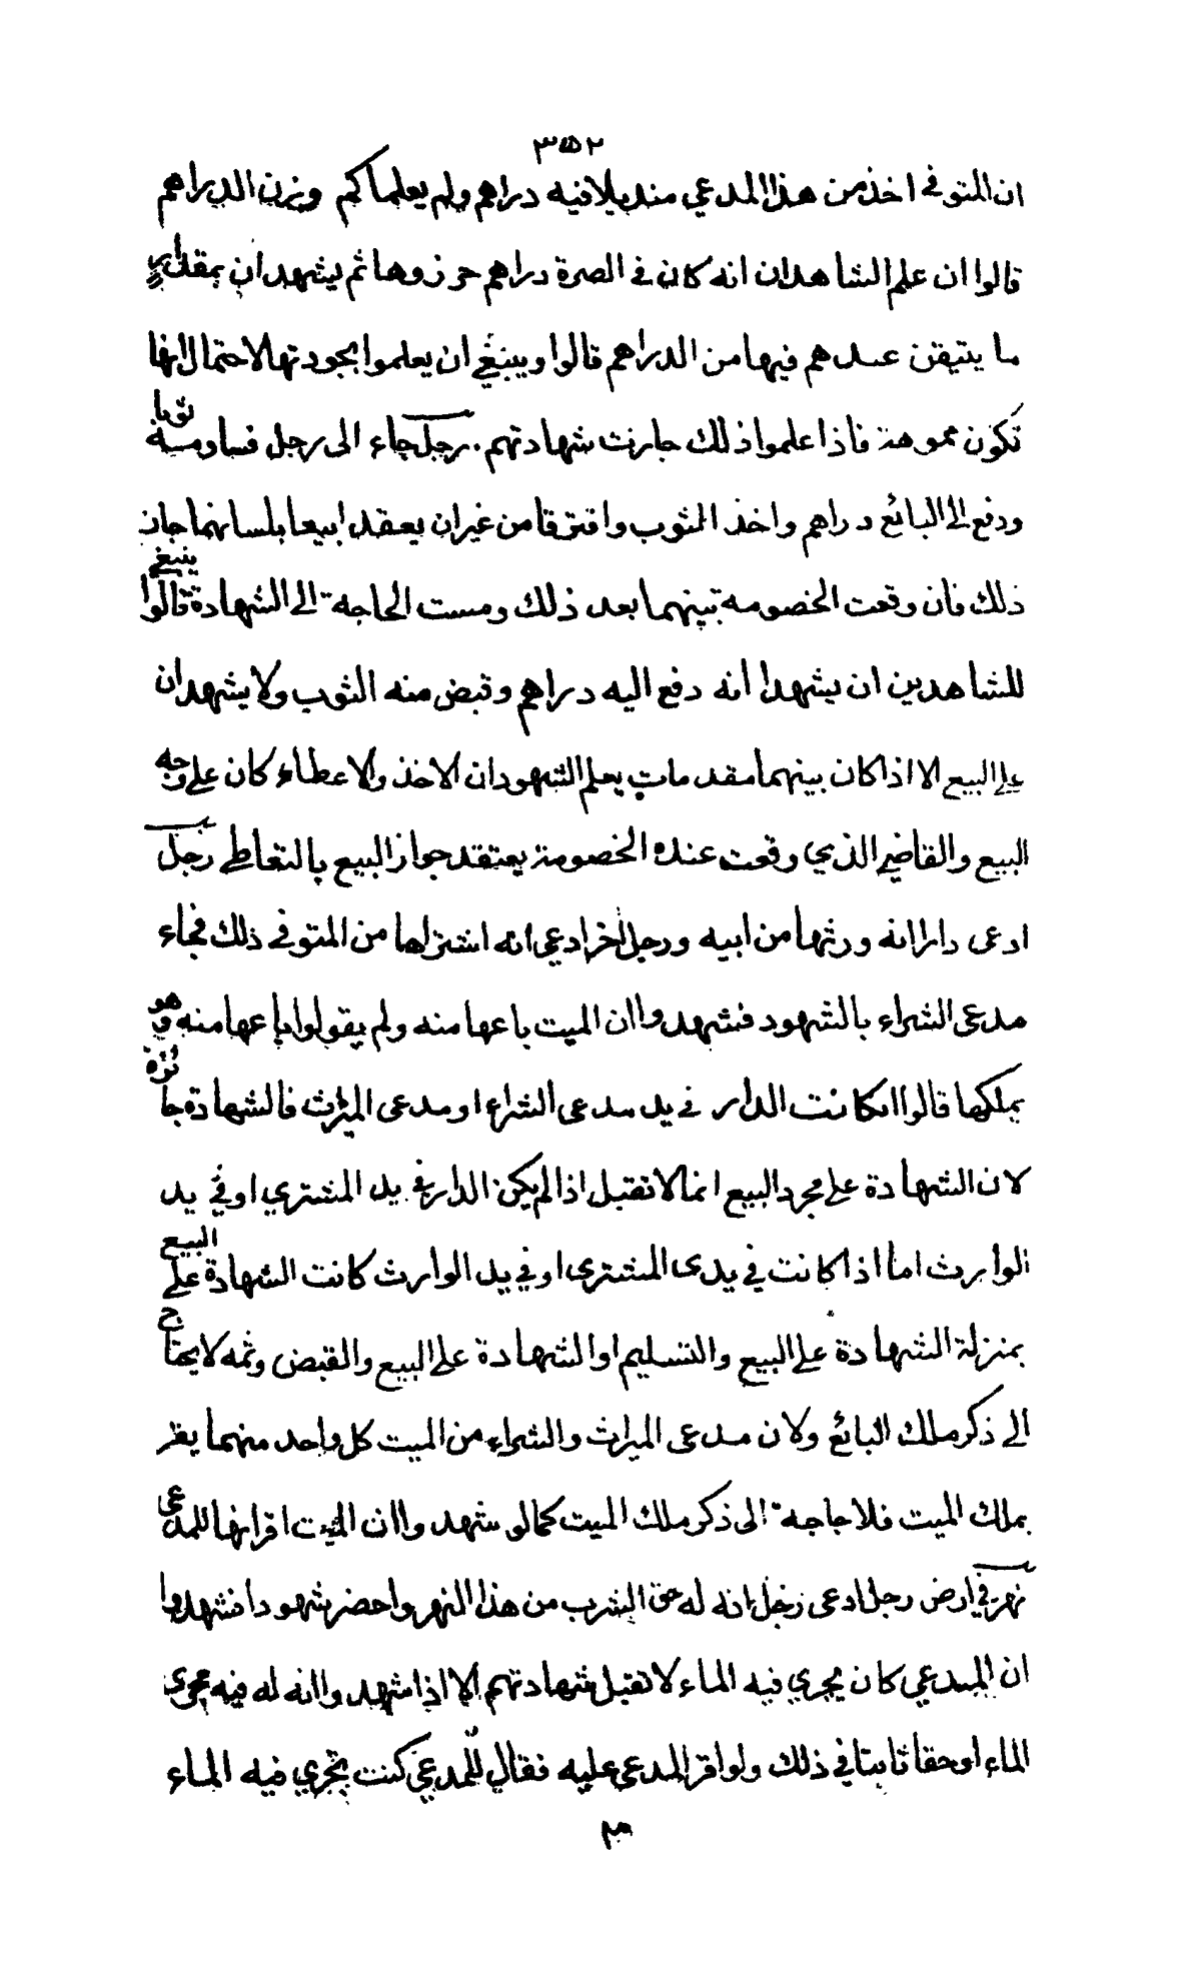 ٣٥٢
ان المتوفى اخذ من هذا المدعي منديلا فيه دراهم ولم يعلما كم وزن الدراهم
قالوا ان علم الشاهدان انه كان في الصرة دراهم حرزوها ثم يشهدان بمقدار
ما يتيقن عندهم فيها من الدراهم قالوا وينبغي ان يعلموا بجودتها لاحتمال انها
تكون مموهة فاذا علموا ذلك جازت شهادتهم . رجل جاء الى رجل فساومه ثوبا
ودفع الى البائع دراهم واخذ الثوب وافترقا من غير ان يعقدا بيعا بلسانهما جاز
ذلك فان وقعت الخصومة بينهما بعد ذلك ومست الحاجة الى الشهادة قالوا ينبغي
للشاهدين ان يشهدا انه دفع اليه دراهم وقبض منه الثوب ولا يشهدان
على البيع الا اذا كان بينهما مقدمات يعلم الشهود ان الاخذ والاعطاء كان على وجه
البيع والقاضي الذي وقعت عنده الخصومة يعتقد جواز البيع بالتعاطي رجل
ادعى دارا انه ورثها من ابيه ورجل آخر ادعى انه اشتراها من المتوفى ذلك فجاء
مدعى الشراء بالشهود فشهدوا ان الميت باعها منه ولم يقولوا باعها منه وهو
يملكها قالوا ان كانت الدار في يد مدعى الشراء او مدعى الميراث فالشهادة جائزة
لان الشهادة على مجرد البيع انما لا تقبل اذا لم يكن الدار في يد المشتري او في يد
الوارث اما اذا كانت في يدى المشترى او في يد الوارث كانت الشهادة على البيع
بمنزلة الشهادة على البيع والتسليم او الشهادة على البيع والقبض وثمه لا يحتاج
الى ذكر ملك البائع ولان مدعى الميراث والشراء من الميت كل واحد منهما يقر
بملك الميت فلا حاجة الى ذكر ملك الميت كما لو شهدوا ان الميت اقر انها للمدعى
نهر في ارض رجل ادعى رجل انه له حق الشرب من هذا النهر واحضر شهودا فشهدوا
ان المدعي كان يجري فيه الماء لا تقبل شهادتهم الا اذا شهدوا انه له فيه مجرى
الماء او حقا ثابتا في ذلك ولو اقر المدعى عليه فقال للمدعي كنت تجري فيه الماء